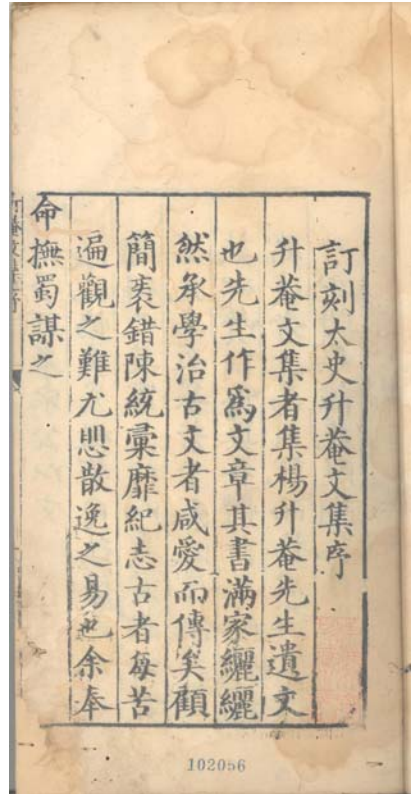 訂刻太史升菴文集序
升菴文集者集楊升菴先生遺文
也先生作爲文章其書滿家纚纚
然承學治古文者咸愛而傳矣顧
簡袠錯陳統彙靡紀志古者每苦
遍觀之難尤思散逸之易也余奉
命撫蜀謀之
102056